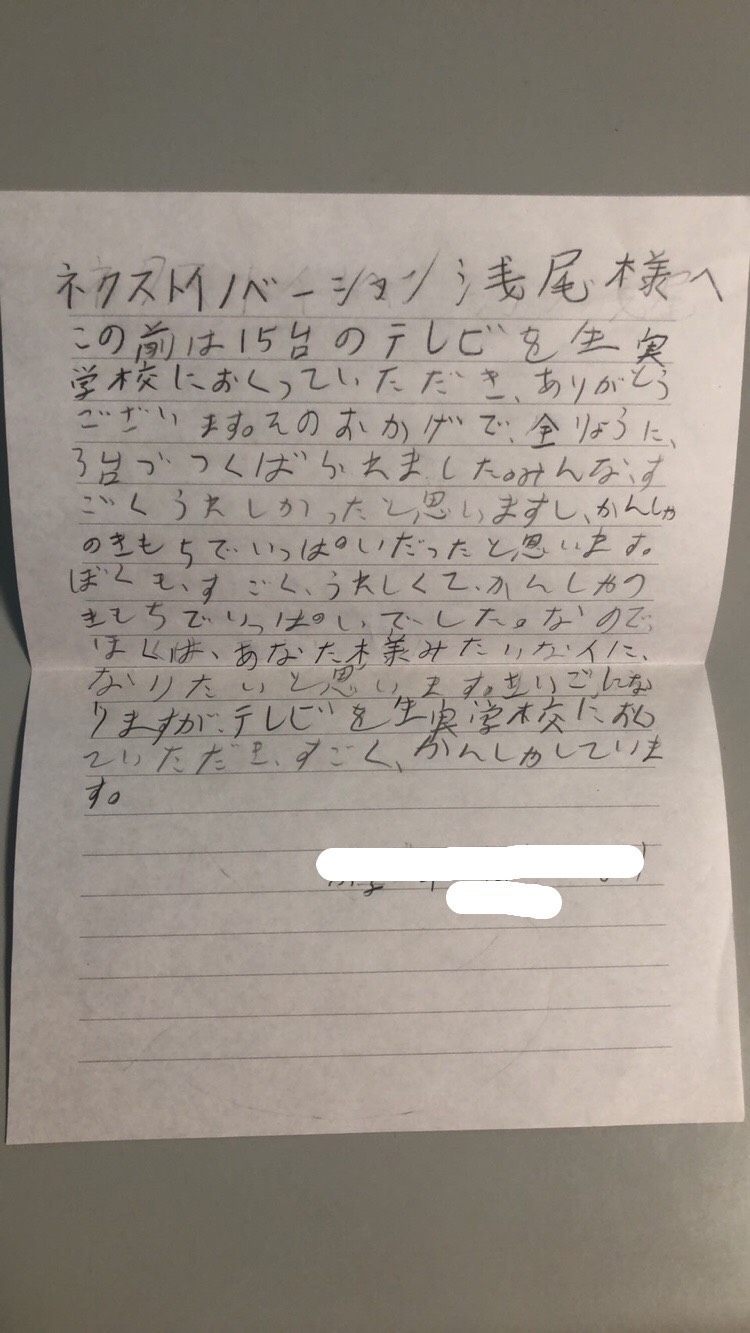 ネクストイノベーション 浅尾様へ
この前は15台のテレビを生実
学校におくっていただき、ありがとう
ございます。そのおかげで、全りょうに、
3台づつくばられました。みんな、す
ごくうれしかったと思いますし、かんしゃ
のきもちでいっぱいだったと思います。
ぼくも、すごく、うれしくて、かんしゃの
きもちでいっぱいでした。なので、
ぼくは、あなた様みたいな人に、
なりたいと思います。さいごにな
りますが、テレビを生実学校におくっ
ていただき、すごく、かんしゃしていま
す。